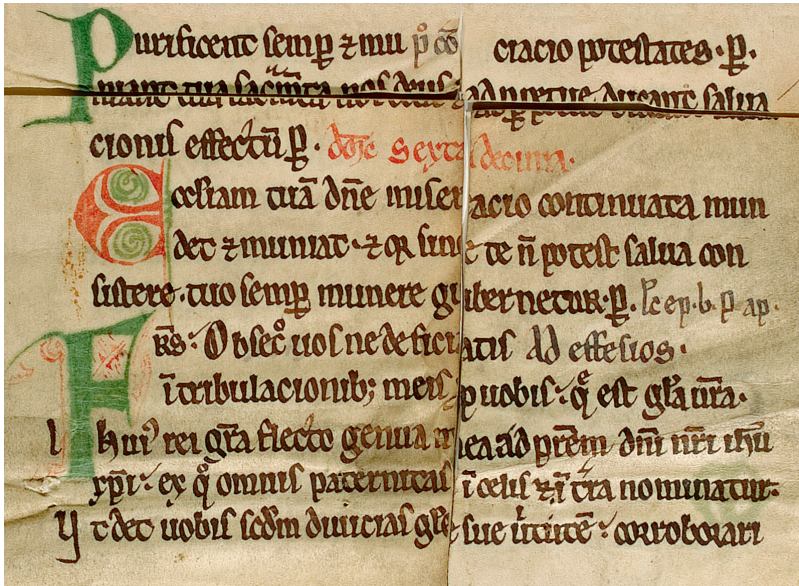 Purificent semꝑ ⁊ mu p̊ cō ciacio potestates · ꝑ ·
niant tua sac̄m̄ta nos deus ad ꝑpetue ducant salua
cionis effectū ꝑ · dōic Sexta decima ·
Ecclesiam tuā dn̄e miseracio continuata mun
det ⁊ muniat · ⁊ qꝛ sine te n̄ potest salua con
sistere · tuo semꝑ munere gubernetur · ꝑ · lc̄ ep · b · p ap ·
FRS · Obsec̊ uos ne deficiatis Ad effesios ·
ī tribulacionib; meis ꝑ uobis · q̄ est gl̄a ur̄a ·
hui᾽ rei gr̄a flecto genua mea ad pr̄em dn̄i nr̄i ihū
xp̄i · ex q̊ omnis paternitas ī celis ⁊ ī tr̄a nominatur ·
Vt det uobis scd̄m diuicias gl̄e sue uirtute · corroborari